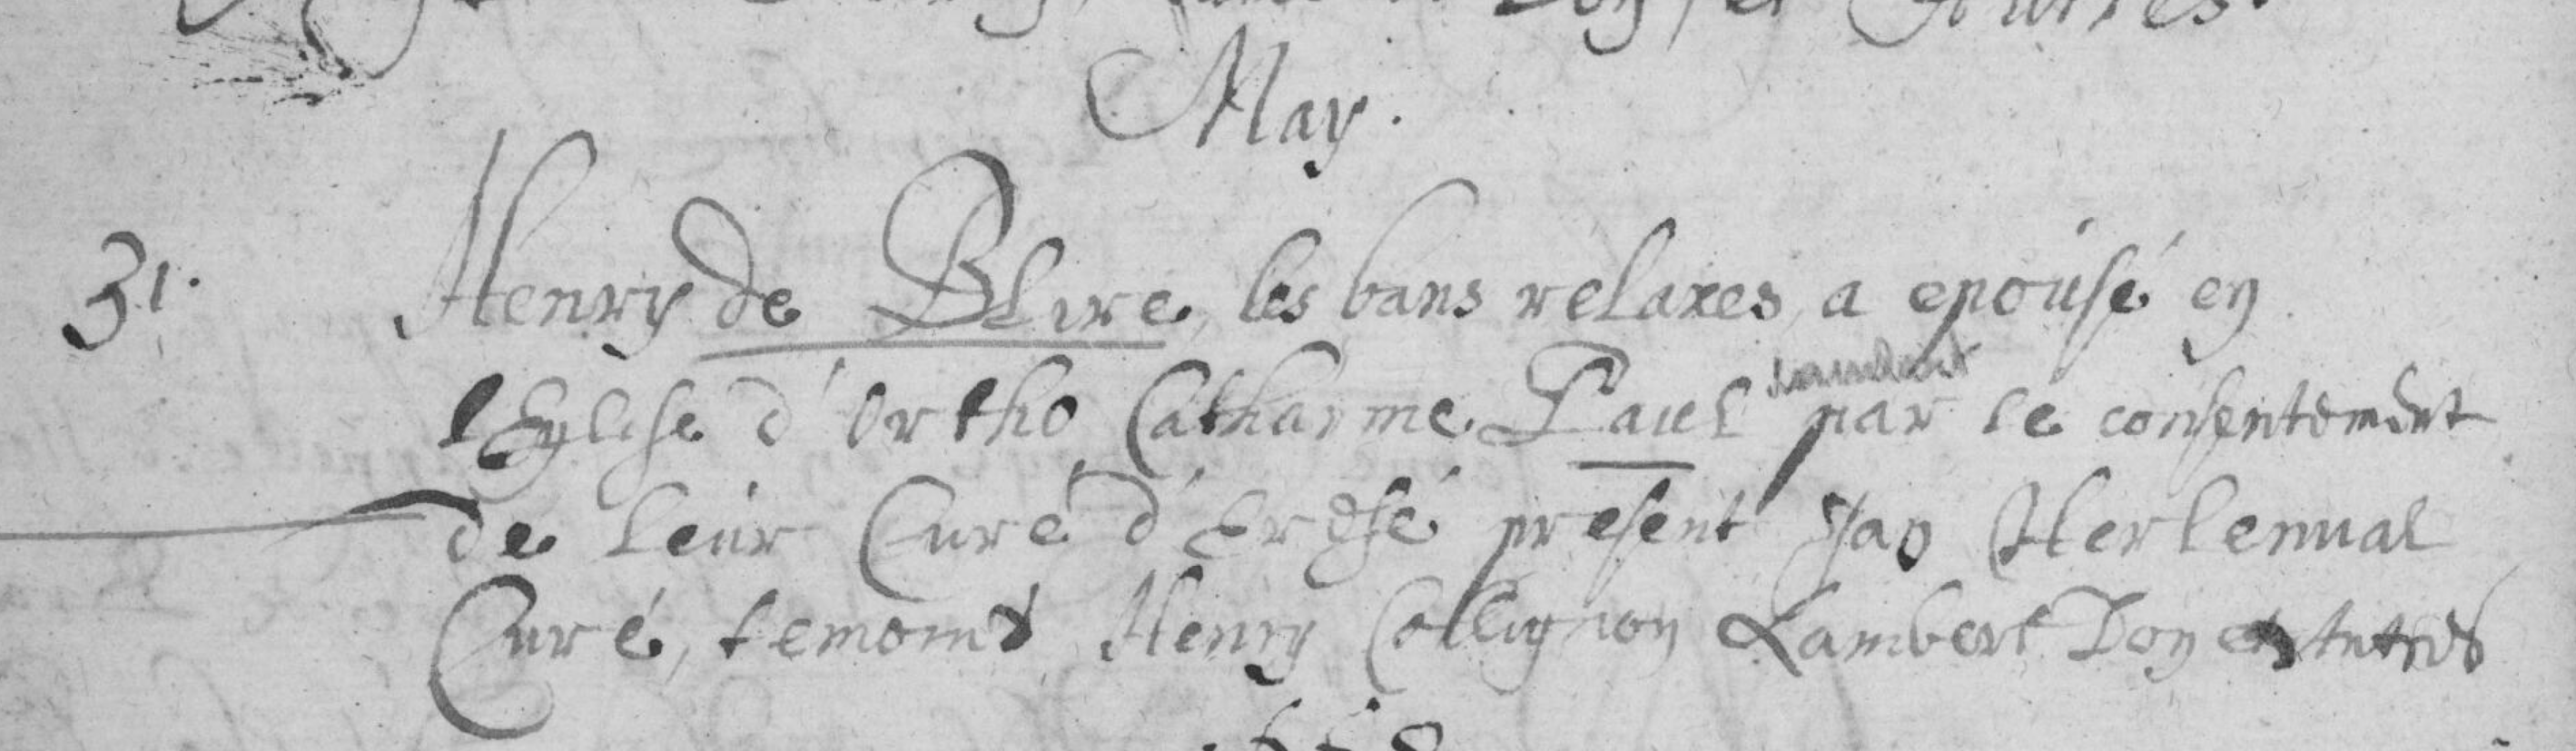 May.
31. Henry de Blire, les bans relaxes, a epousé en
l'Eglise d'Ortho Catharine Paul par le consentement
de leur Curé d'Erezé present Jan Herlenval
Curé, temoins Henry Collignon Lambert Doy et